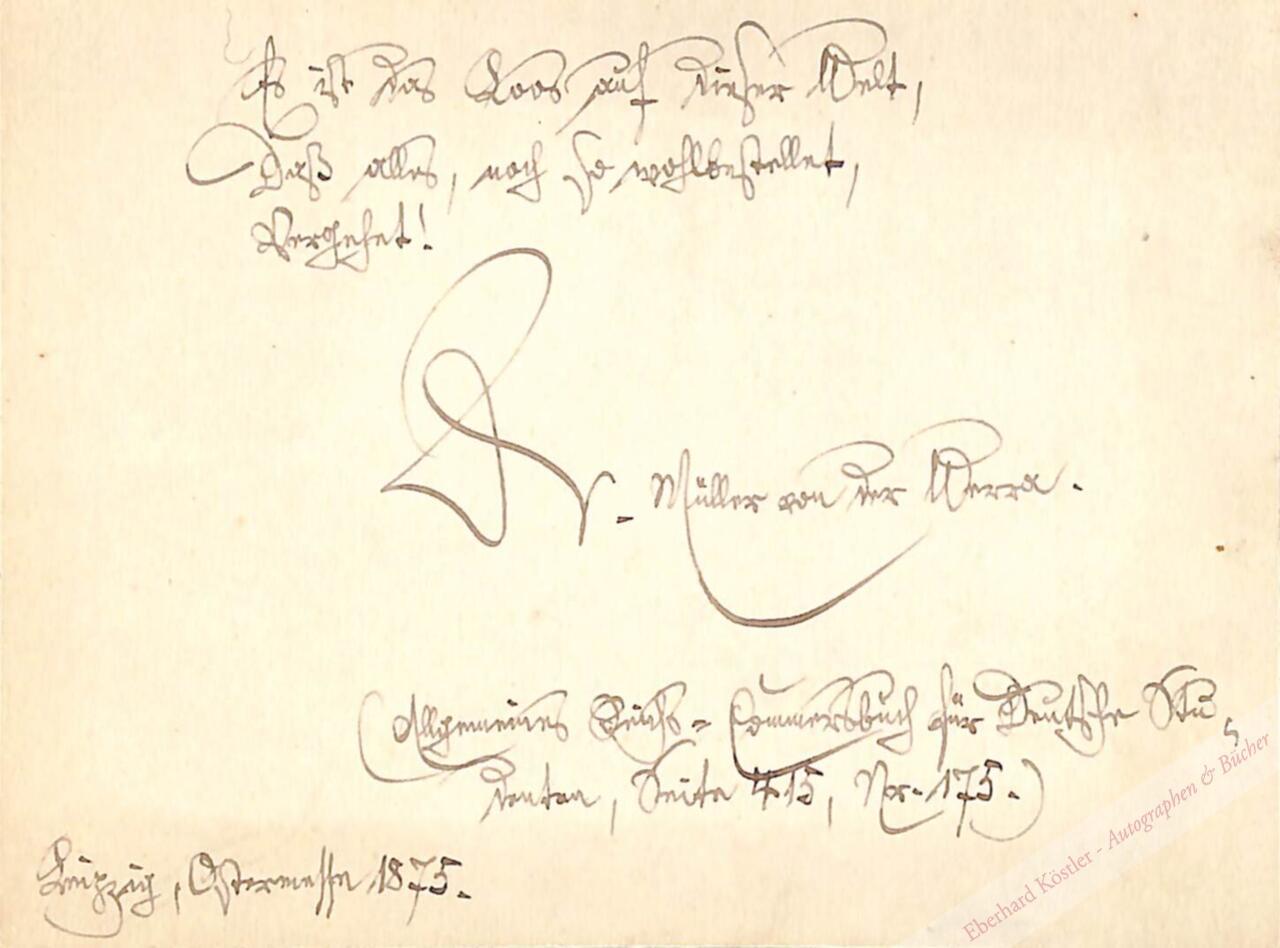 Es ist das Loos auf dieser Welt,
Daß alles, noch so wohlbestellet,
Vergehet!
Dr. Müller von der Werra.
(Allgemeines Reichs-Commersbuch für Deutsche Stu-
denten, Seite 415, Nr. 175.)
Leipzig, Ostermesse 1875.
Eberhard Köstler - Autographen & Bücher